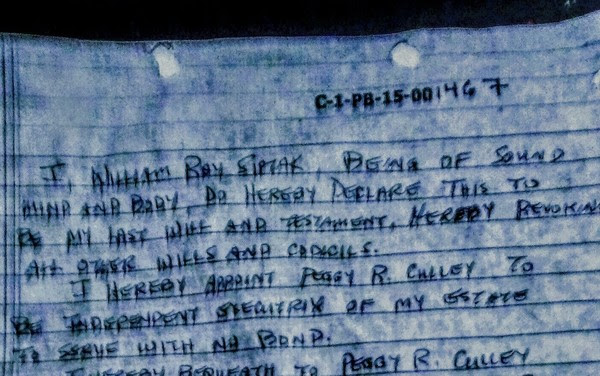 C-1-PB-15-001467
I, William Roy Siptak, BEING OF SOUND
MIND AND BODY, DO HEREBY DECLARE THIS TO
BE MY LAST WILL AND TESTAMENT, HEREBY REVOKING
ALL OTHER WILLS AND CODICILS.
I HEREBY APPOINT PEGGY R. CULLEY TO
BE INDEPENDENT EXECUTRIX OF MY ESTATE
TO SERVE WITH NO BOND.
I HEREBY BEQUEATH TO PEGGY R. CULLEY